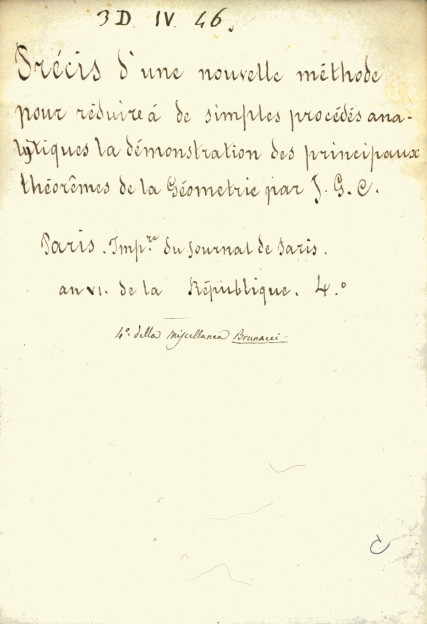 3 D. IV. 46.
Précis d'une nouvelle méthode
pour réduire á de simples procédés ana-
lytiques la démonstration des principaux
théorêmes de la Géometrie par J. G. C.
Paris. Imp.re du Journal de Paris.
an VI. de la République. 4.o
4o. della Miscellanea Brunacci
C